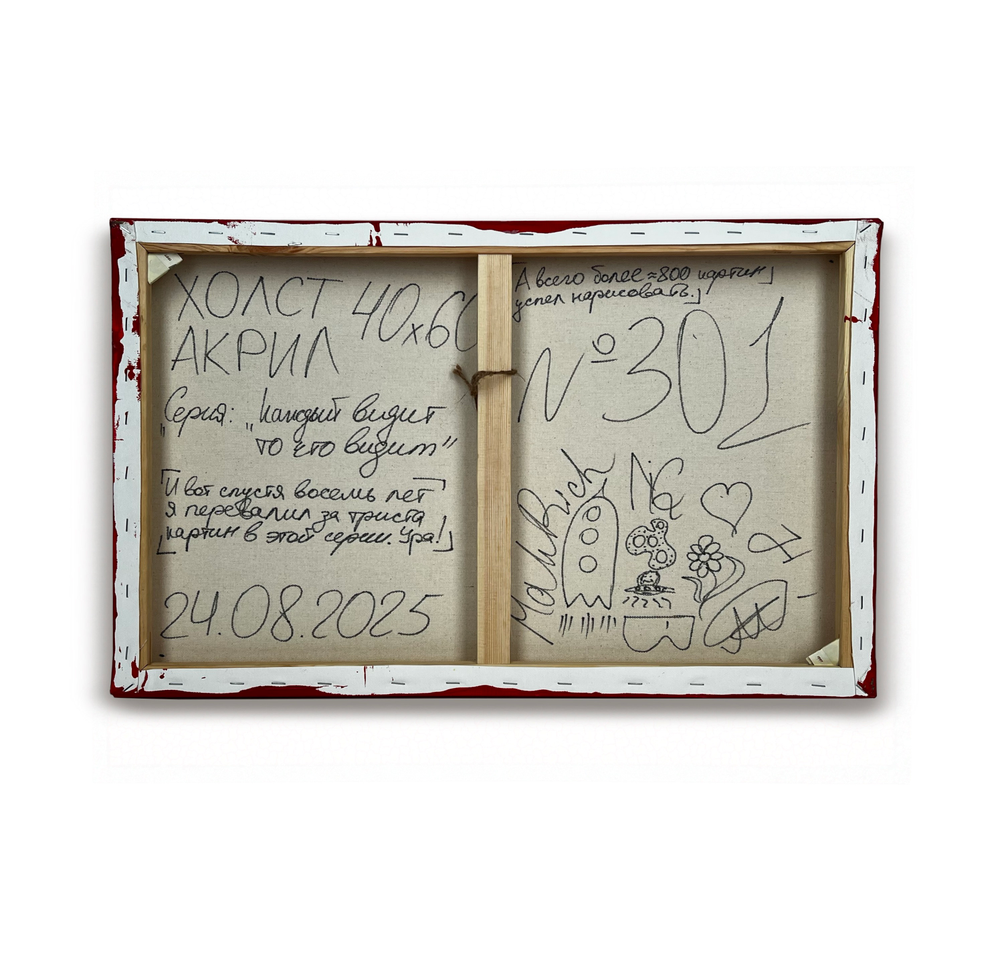 ХОЛСТ 40х60
АКРИЛ
Серия: "Каждый видит
то что видит"
[И вот спустя восемь лет
я перевалил за триста
картин в этой серии. Ура!]
24.08.2025
А всего более ≈800 картин]
успел нарисовать.]
№301